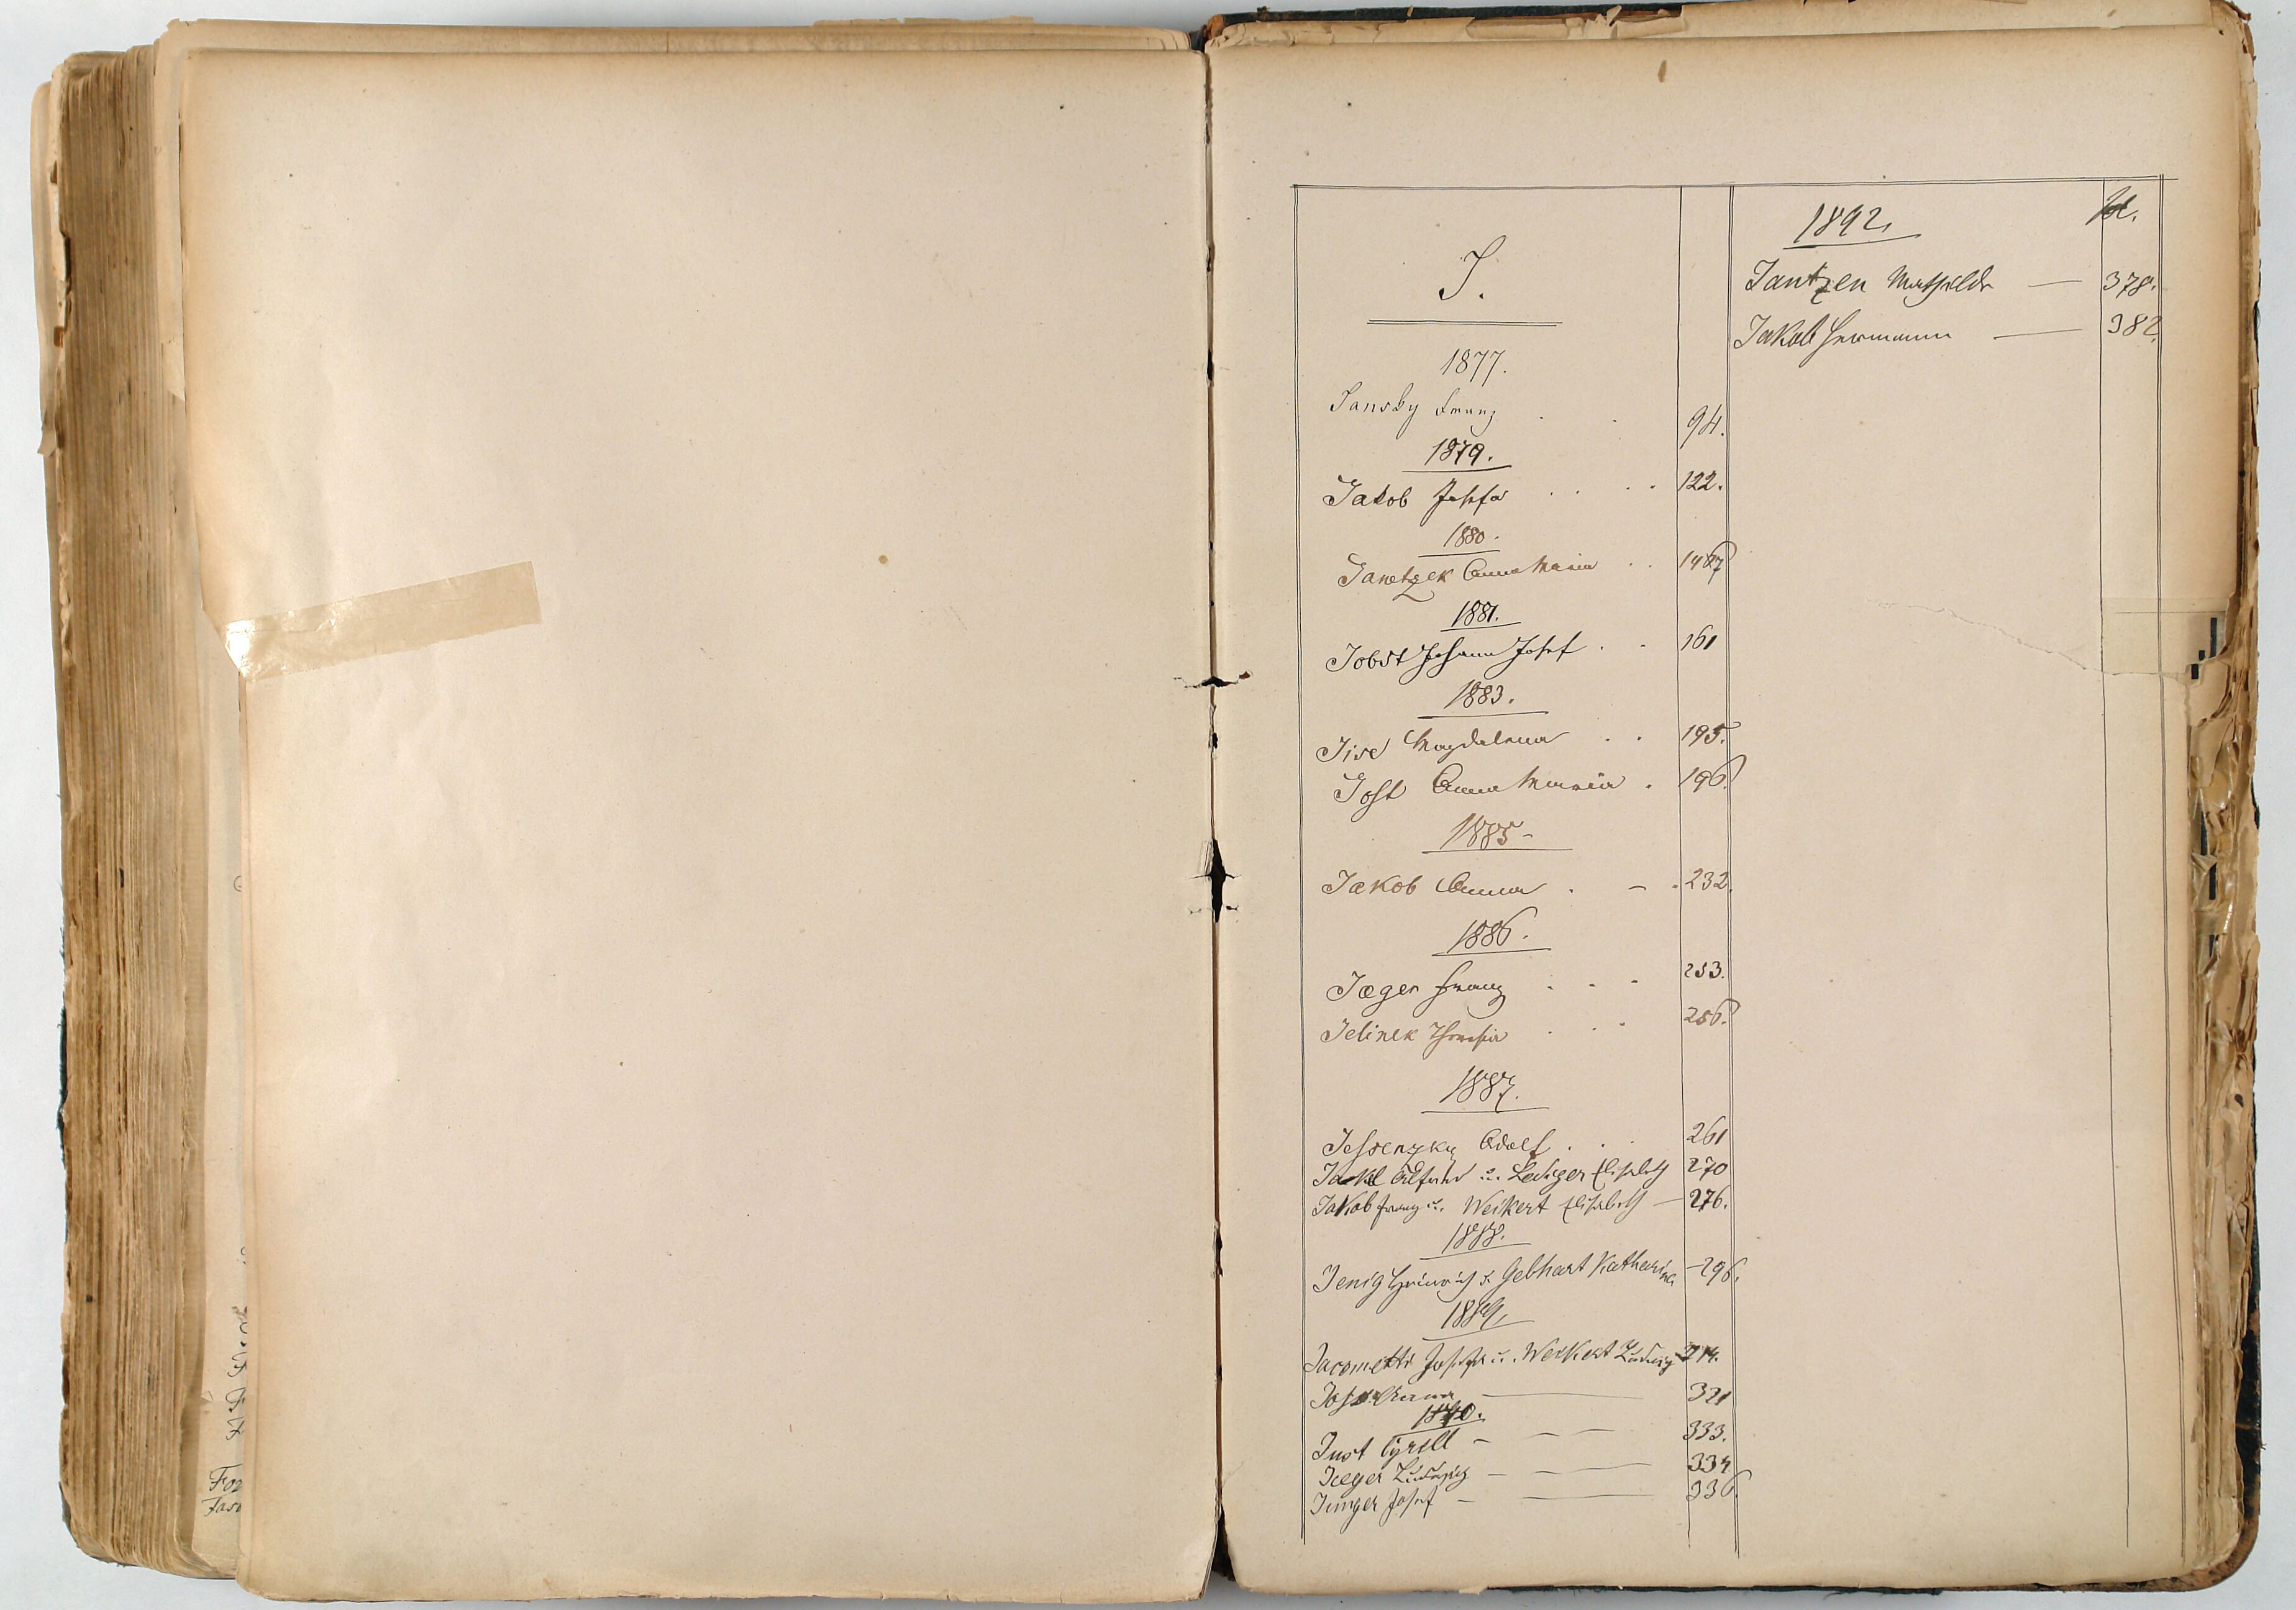 J.
1877.
Jansky Franz 94.
1879.
Jakob Josefa 122.
1880.
Janetzek Anna Maria
1881.
Jobst Johann Josef 161
1883.
Jise Magdalena 195.
Jost Anna Maria 196.
1885
Jakob Anna 232.
1886.
Jæger Franz 253.
Jelinek Theresia 256.
1887.
Jessenzky Adolf 261
Alfred u. Lediger Elisabeth 270
Jakob Franz u. Weikert Elisabeth — 276.
1888.
Jenig Heinrich & Gebhart Katharina — 296.
1889.
Jacometti Josefa u. Weikert Ludwig
321
1890.
Just Cyrill — 333.
Jæger Ludwig — 334
Junger Josef — 336.
1892.
Jantzen Mathilde — 378.
Jakob Hermann — 382.
J.